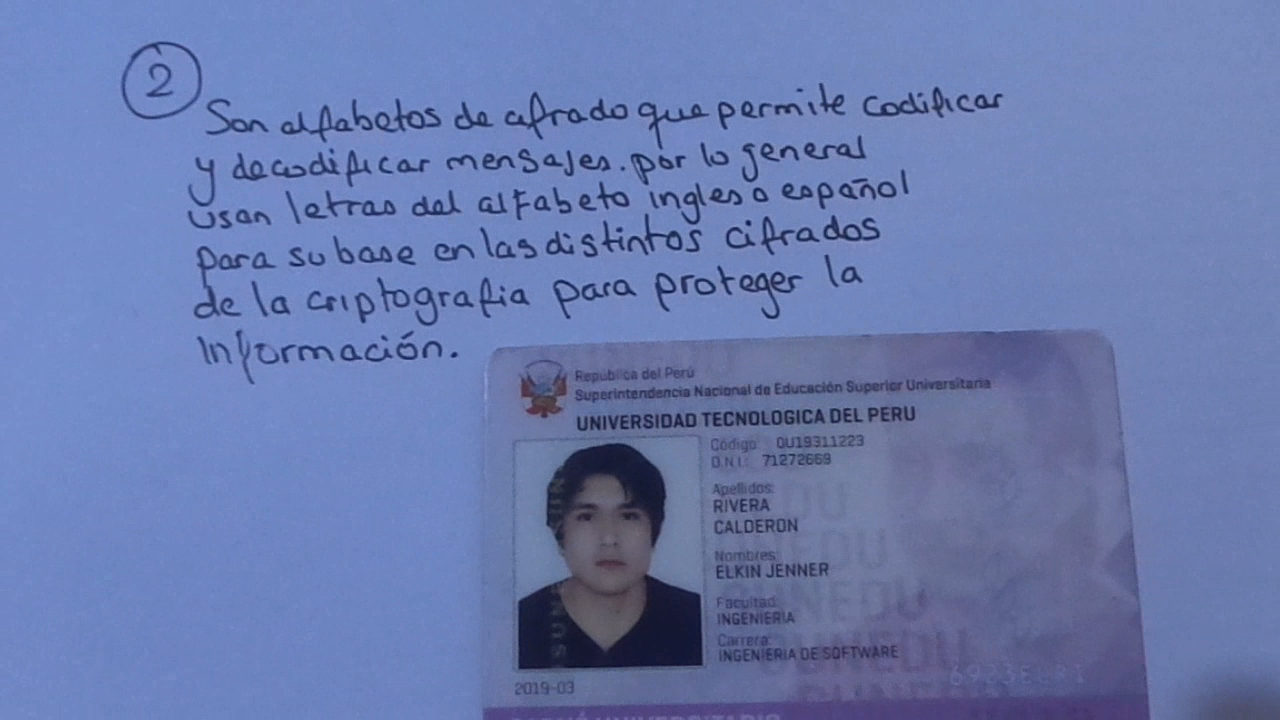 2
Son alfabetos de cifrado que permite codificar
y decodificar mensajes. por lo general
usan letras del alfabeto ingles o español
para su base en las distintos cifrados
de la criptografia para proteger la
Información.
República del Perú
Superintendencia Nacional de Educación Superior Universitaria
UNIVERSIDAD TECNOLOGICA DEL PERU
Código: 0U19311223
D.N.I.: 71272669
Apellidos:
RIVERA
CALDERON
Nombres:
ELKIN JENNER
Facultad:
INGENIERIA
Carrera:
INGENIERIA DE SOFTWARE
2019-03